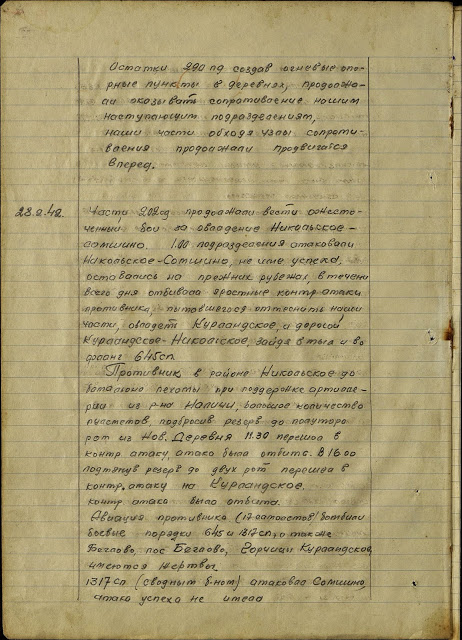 Остатки 290 пд создав огневые опо-
рные пункты в деревнях, продолжа-
ли оказывать сопротивление нашим
наступающим подразделениям,
наши части обходя узлы сопроти-
вления продолжали продвигатся
вперед.
23.2.42. Части 202сд продолжали вести ожесто-
ченный бой за овладение Никольское-
Сомшино. 1.00 подразделения атаковали
Никольское-Сомшино, не име успеха,
оставались на прежних рубежах в течени
всего дня отбивала яростные контр.атаки
противника, пытовшегося оттеснить наши
части, овладеть Курландское, и дорогой
Курландское-Никольское, зайдя в тыл и во
фланг 645сп.
Противник в районе Никольское до
батальона пехоты при поддержке артиле-
рии из р-на Налючи, большое количество
пулеметов, подбросив резерв до полутора
рот из Нов. Деревня 11.30 перешол в
контр атаку, атака была отбита. В 16 00
подтянув резерв до двух рот перешел в
контр.атаку на Курландское.
контр атака была отбита.
Авиация противника (17 самолетов) бомбили
боевые порядки 645 и 1317сп, а также
Беглово, пос Беглово, Горчици Курландское,
имеются жертвы.
1317сп (сводный б-нот) атаковал Сомшино,
атака успеха не имела